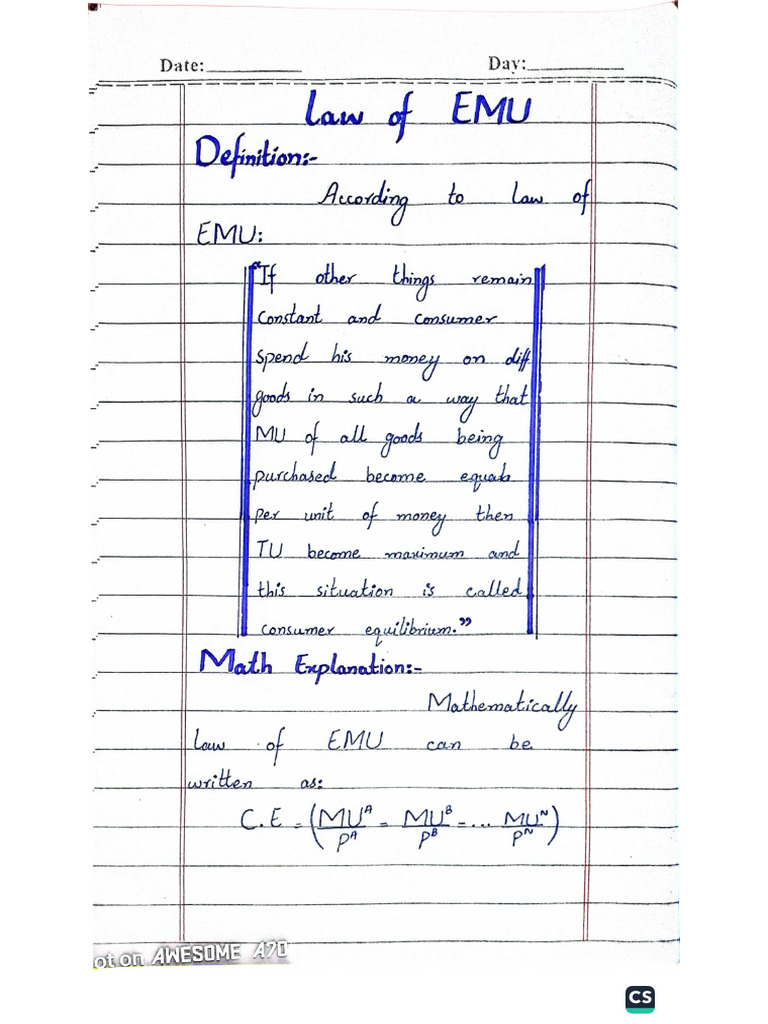 Date:__________ Day:__________
Law of EMU
Definition:-
According to Law of
EMU:
"If other things remain
constant and consumer
spend his money on diff
goods in such a way that
MU of all goods being
purchased become equals
per unit of money then
TU become maximum and
this situation is called
consumer equilibrium.”
Math Explanation:-
Mathematically
Law of EMU can be
written as:
C.E = (MU^A/P^A = MU^B/P^B = ... MU^N/P^N)
ot on AWESOME A70
CS